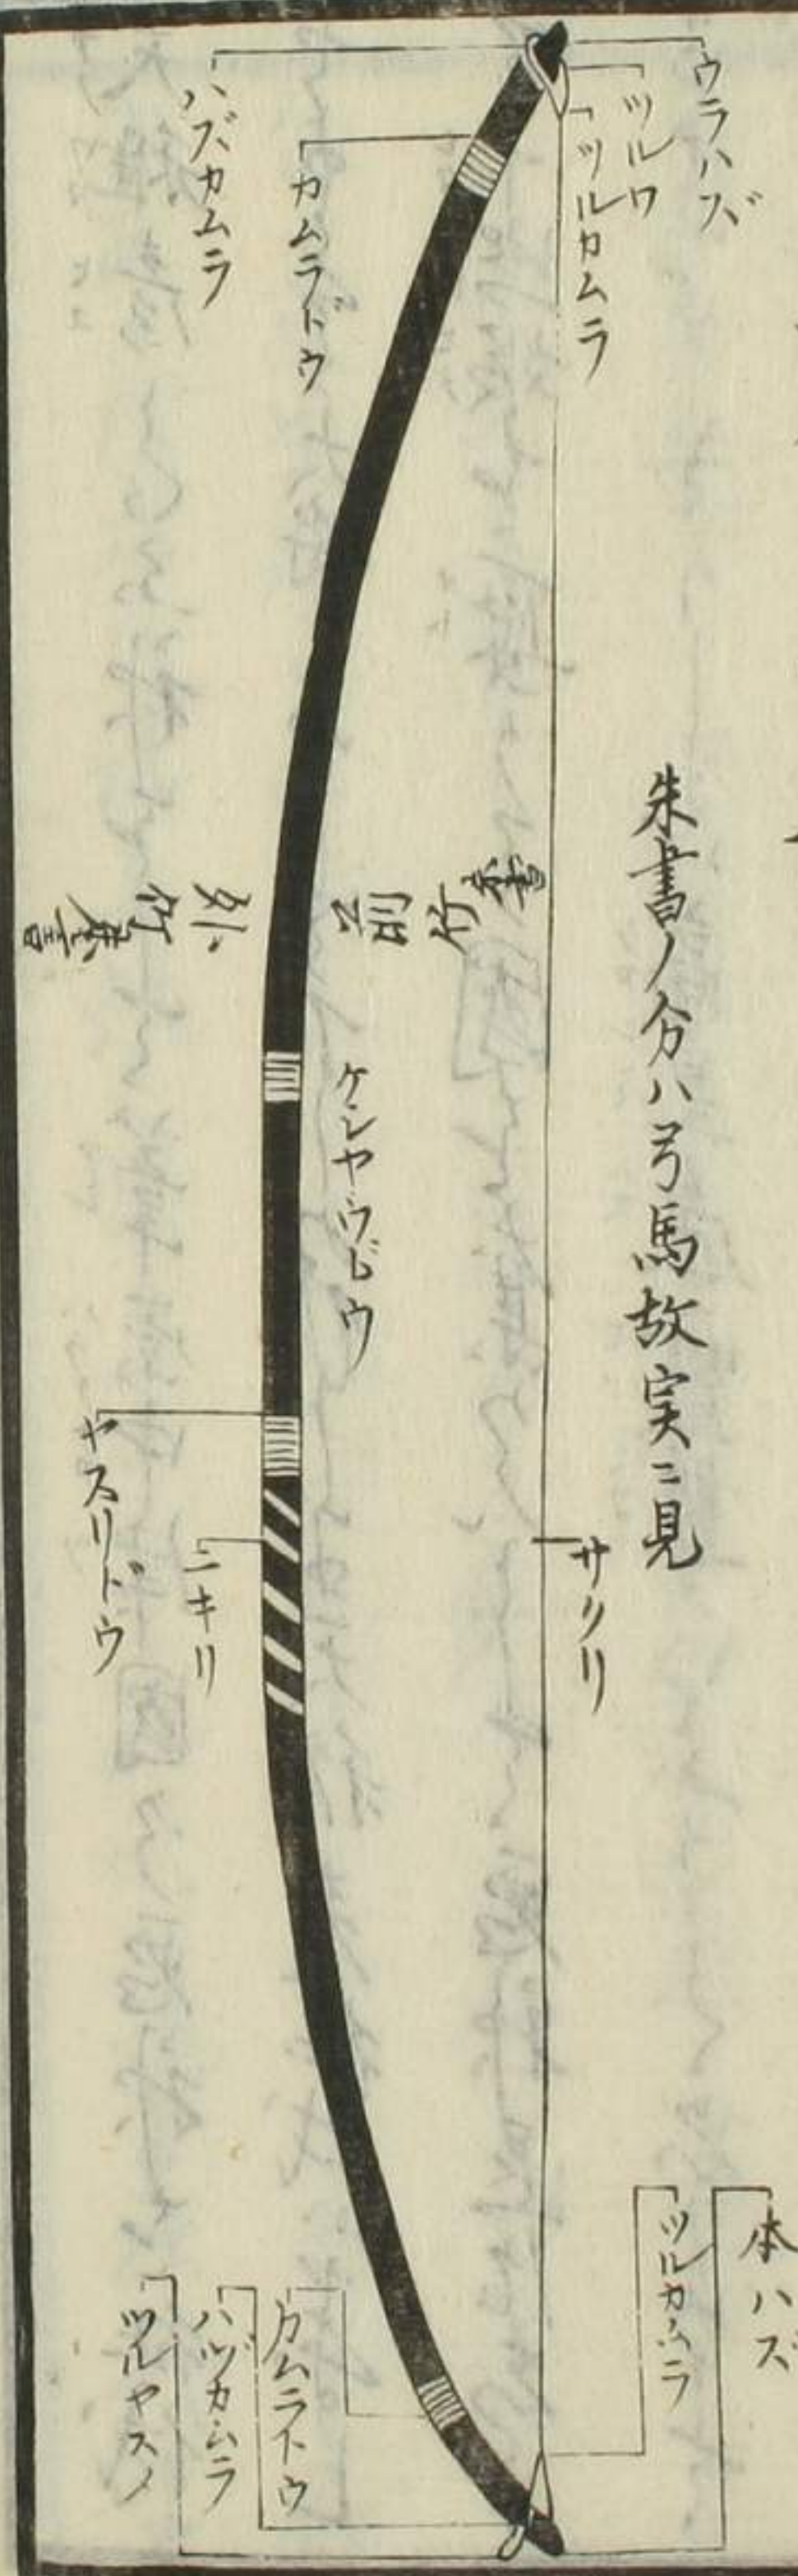 ウラハズ
ツルワ
ツルカムラ
カムラドウ
ハズカムラ
朱書ノ分ハ弓馬故実ニ見
外竹 朱書
ケシヤウドウ
サクリ
ニキリ
ヤスリドウ
本ハズ
ツルカムラ
カムラトウ
ハヅカムラ
ツルヤスノ